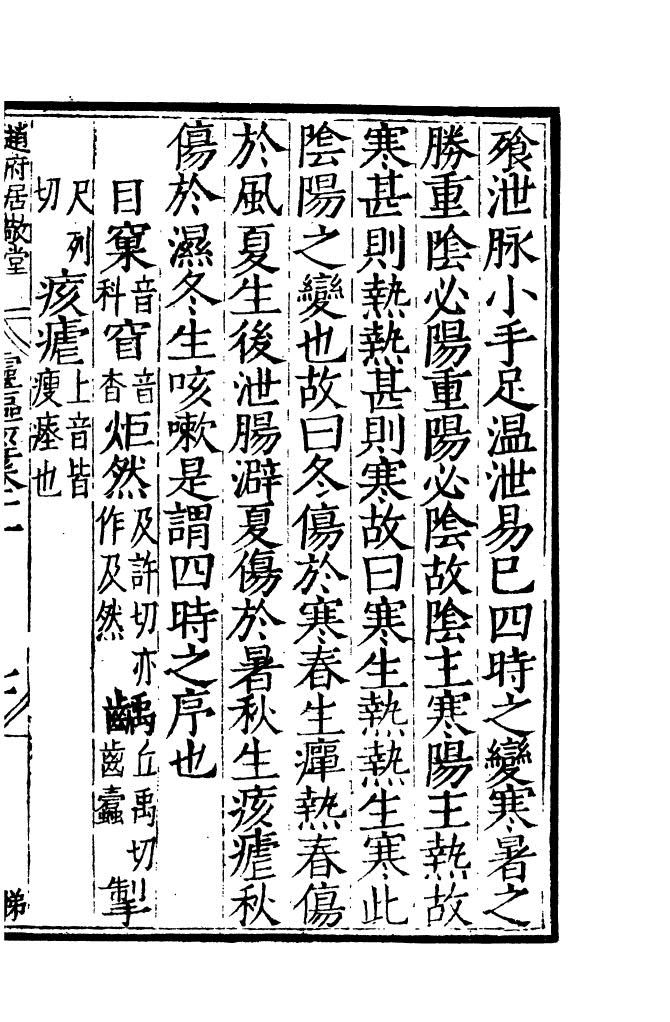 飱泄脉小手足温泄易已四時之變寒暑之
勝重陰必陽重陽必陰故陰主寒陽主熱故
寒甚則熱熱甚則寒故曰寒生熱熱生寒此
陰陽之變也故曰冬傷於寒春生癉熱春傷
於風夏生後泄腸澼夏傷於暑秋生痎瘧秋
傷於濕冬生咳嗽是謂四時之序也
目窠音科窅音杳炬然及許切亦作及然齲丘禹切齒蠹掣
尺列切痎瘧上音皆瘦瘧也
趙府居敬堂